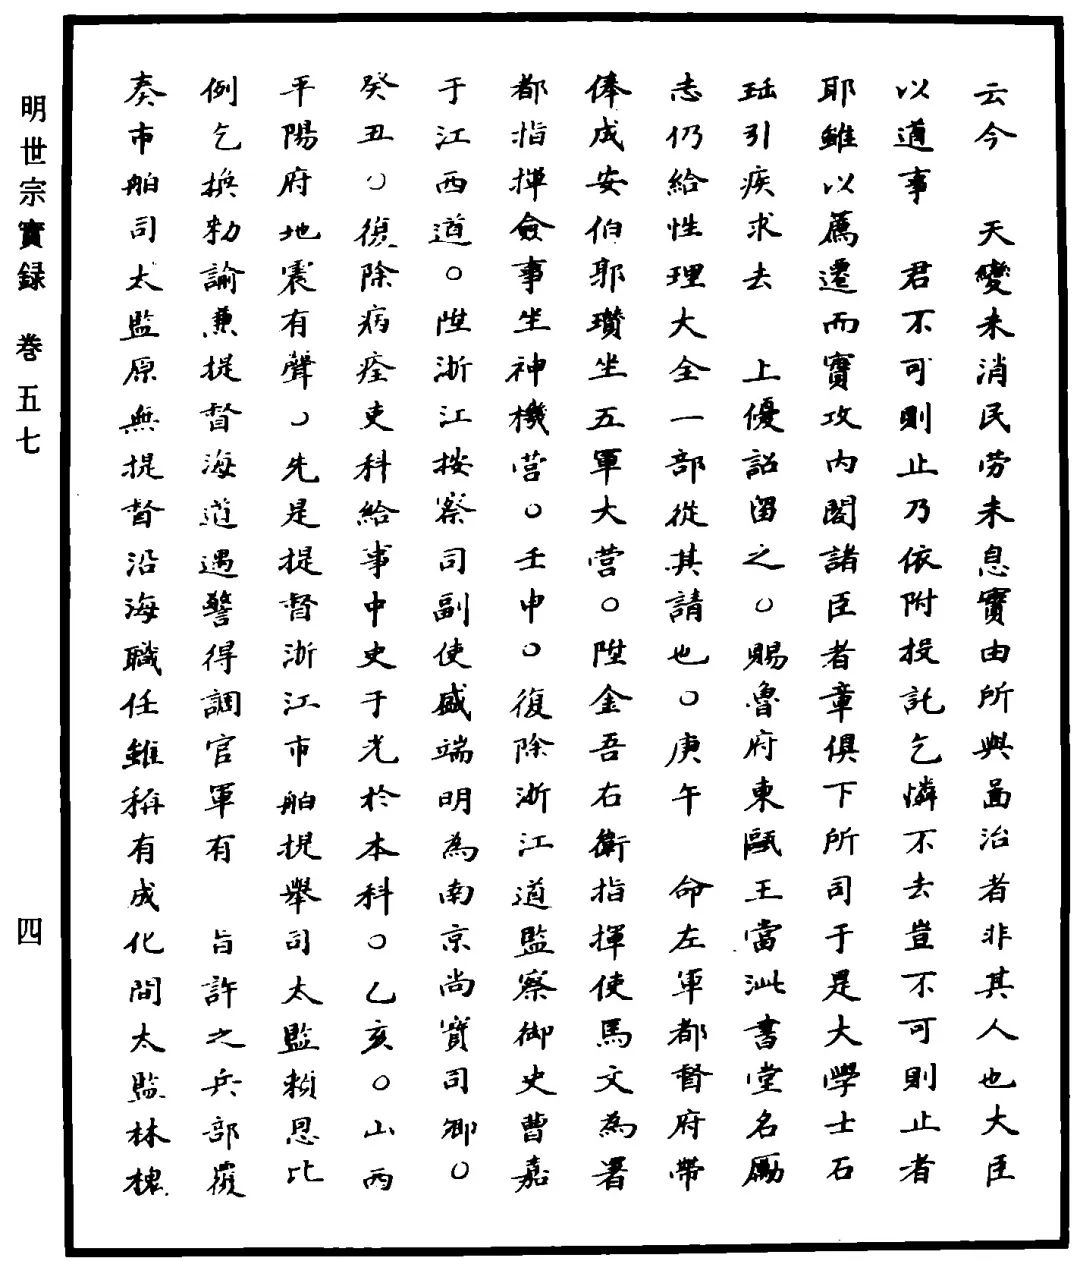 云今　天變未消民劳未息實由所與啚治者非其人也大臣
以道事　君不可則止乃依附投託乞憐不去豈不可則止者
耶雖以薦遷而實攻内閣諸臣者章俱下所司于是大學士石
珤引疾求去　上優詔留之○賜魯府東甌王當沘書堂名勵
志仍給性理大全一部從其請也○庚午　命左軍都督府帶
俸成安伯郭瓚坐五軍大营○陞金吾右衛指揮使馬文為署
都指揮僉事坐神機营○壬申○復除浙江道監察御史曹嘉
于江西道○陞浙江按察司副使盛端明為南京尚寶司卿○
癸丑○復除病痊吏科給事中史于光於本科○乙亥○山西
平陽府地震有聲○先是提督浙江市舶提舉司太監賴恩比
例乞換勑諭兼提督海道遇警得調官軍有　旨許之兵部覆
奏市舶司太監原無提督沿海職任雖稱有成化間太監林槐
明世宗實録　卷五七
四